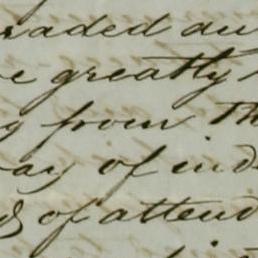 raded au
e greatly
from th
ay of ind
& of attend